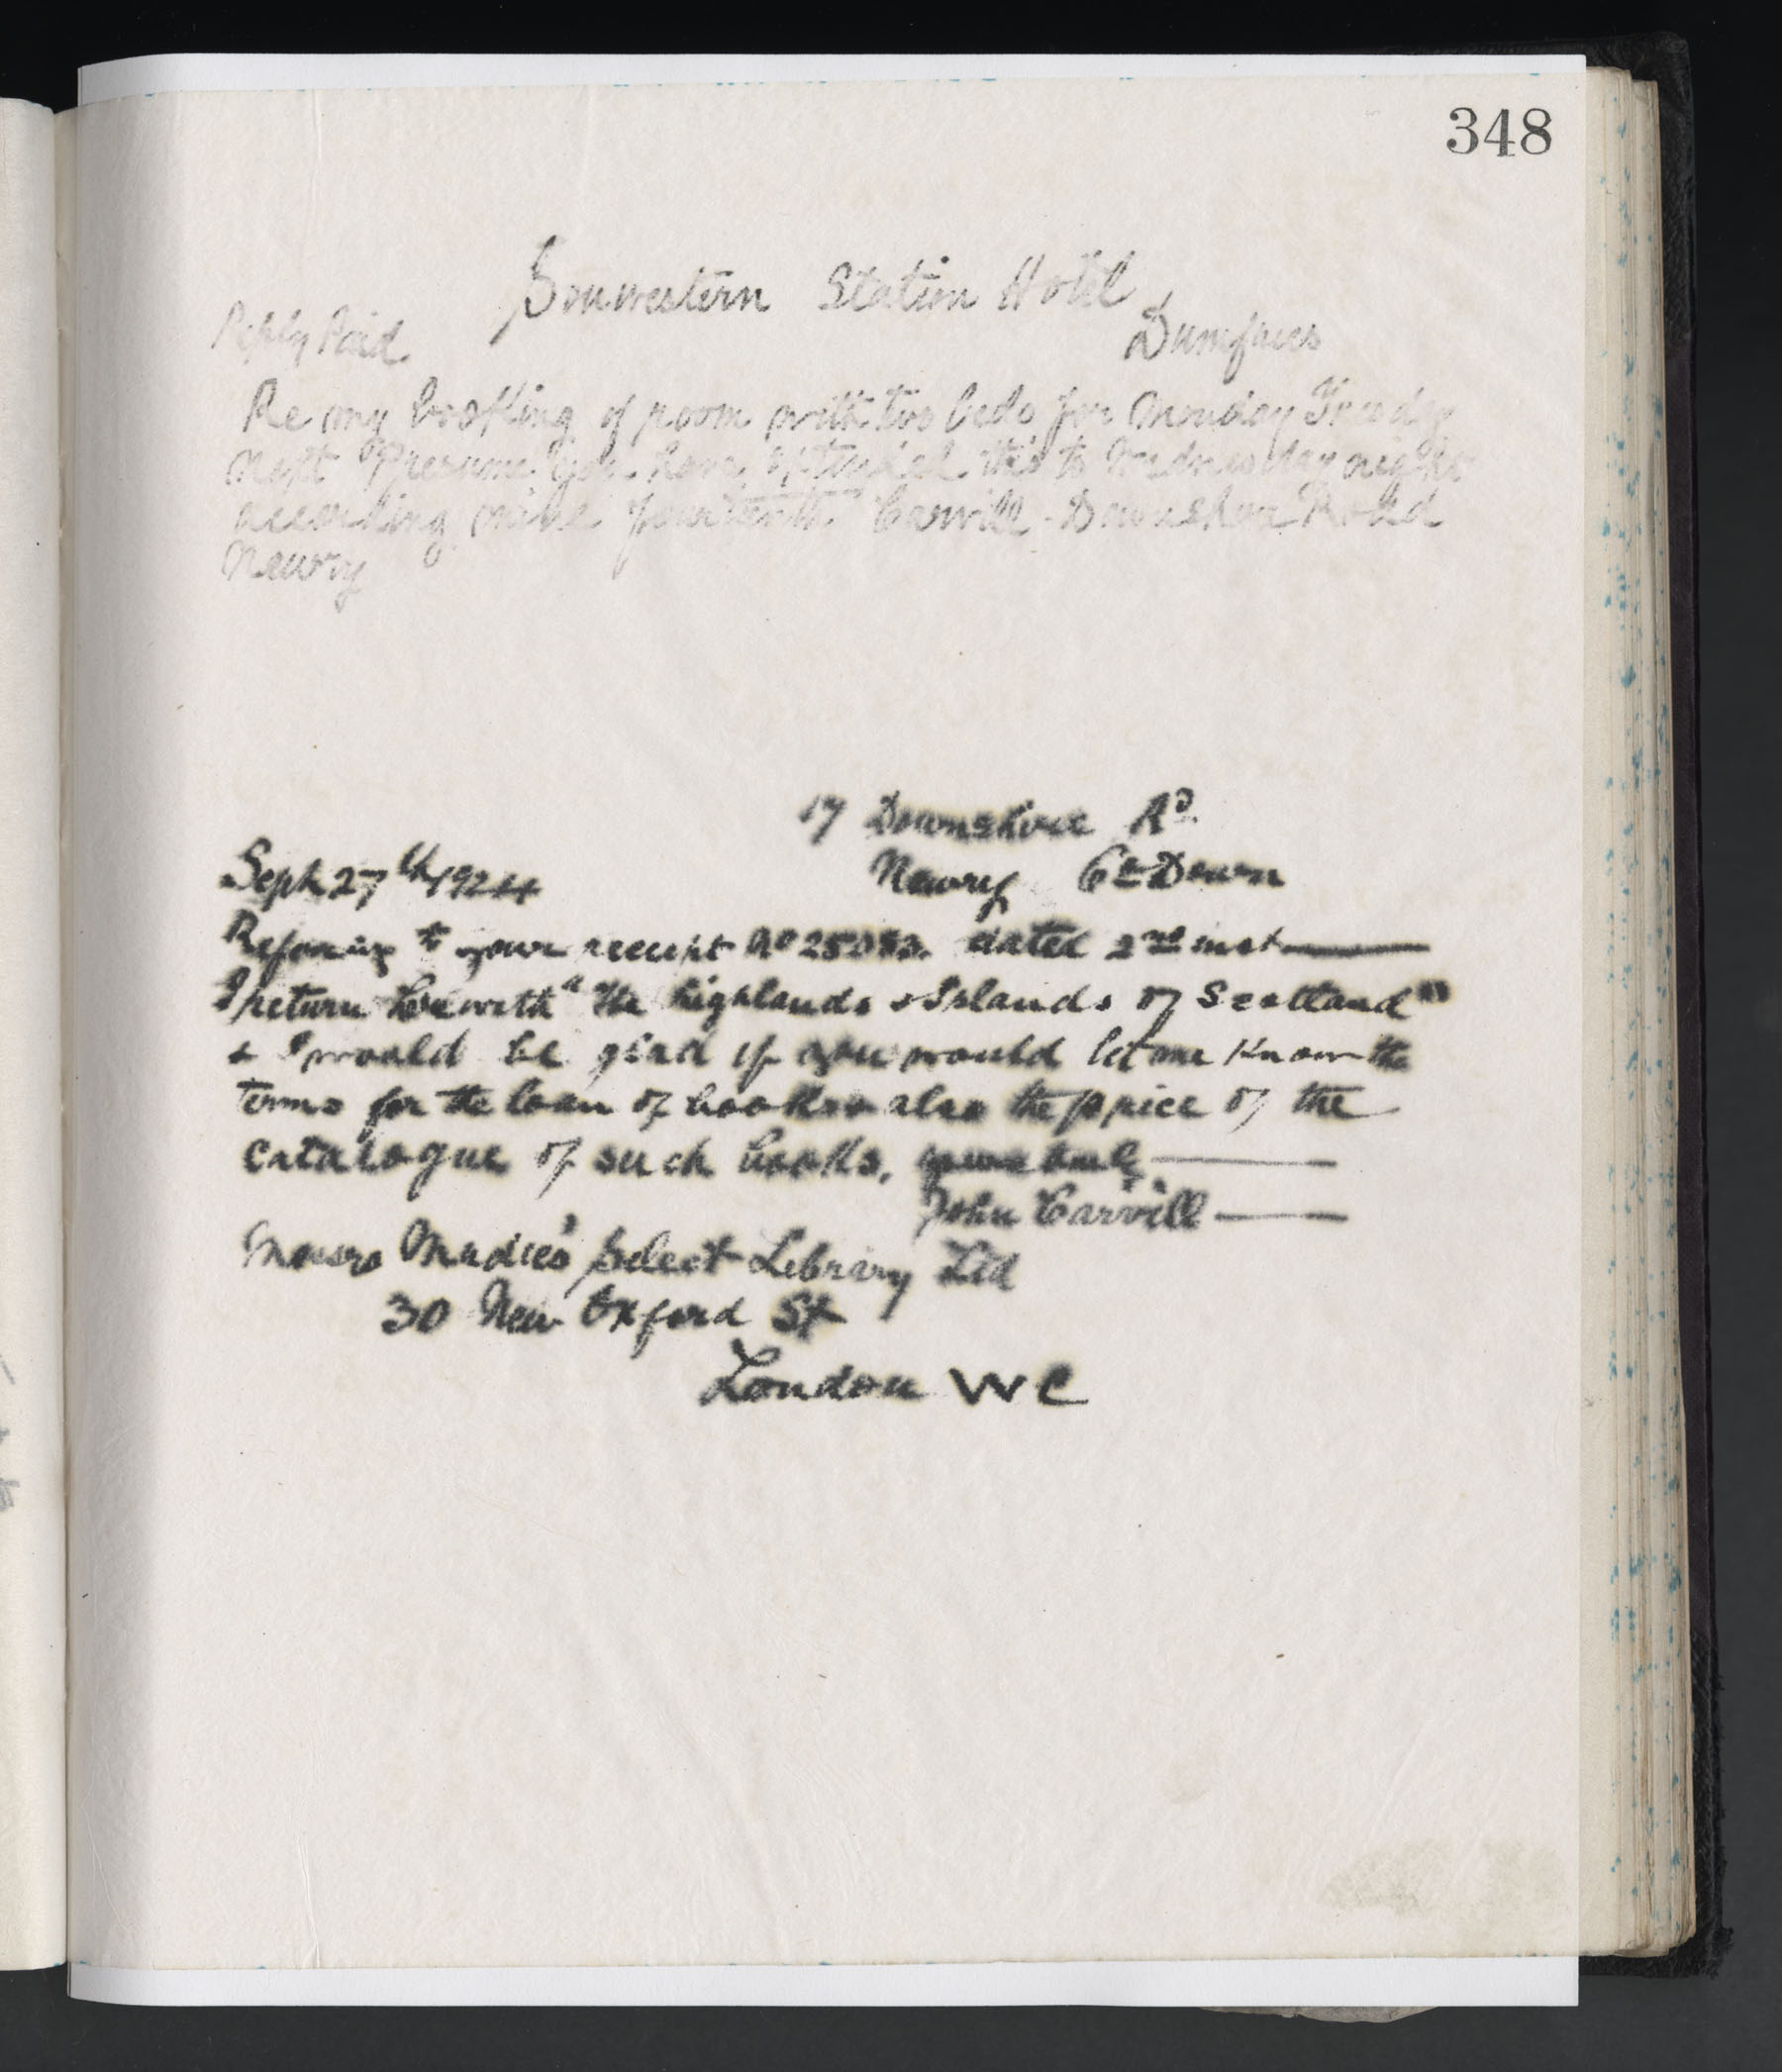 348
Souwestern Station Hotel
Reply Paid
Dumfries
Re my booking of room with two beds for Monday Tuesday
next Presume you have extended this to Wednesday night
according mine fourteenth Carvill Downshire Road
Newry
17 Downshire Rd
Newry Co Down
Sept 27th 1924
Referring to your receipt No dated 2nd inst
I return herewith "the highlands & Islands of Scotland"
& I would be glad if you would let me know the
terms for the loan of books & also the price of the
catalogue of such books, yours truly
John Carvill
Messrs Mudie's Select Library Ltd
30 New Oxford St
London WC